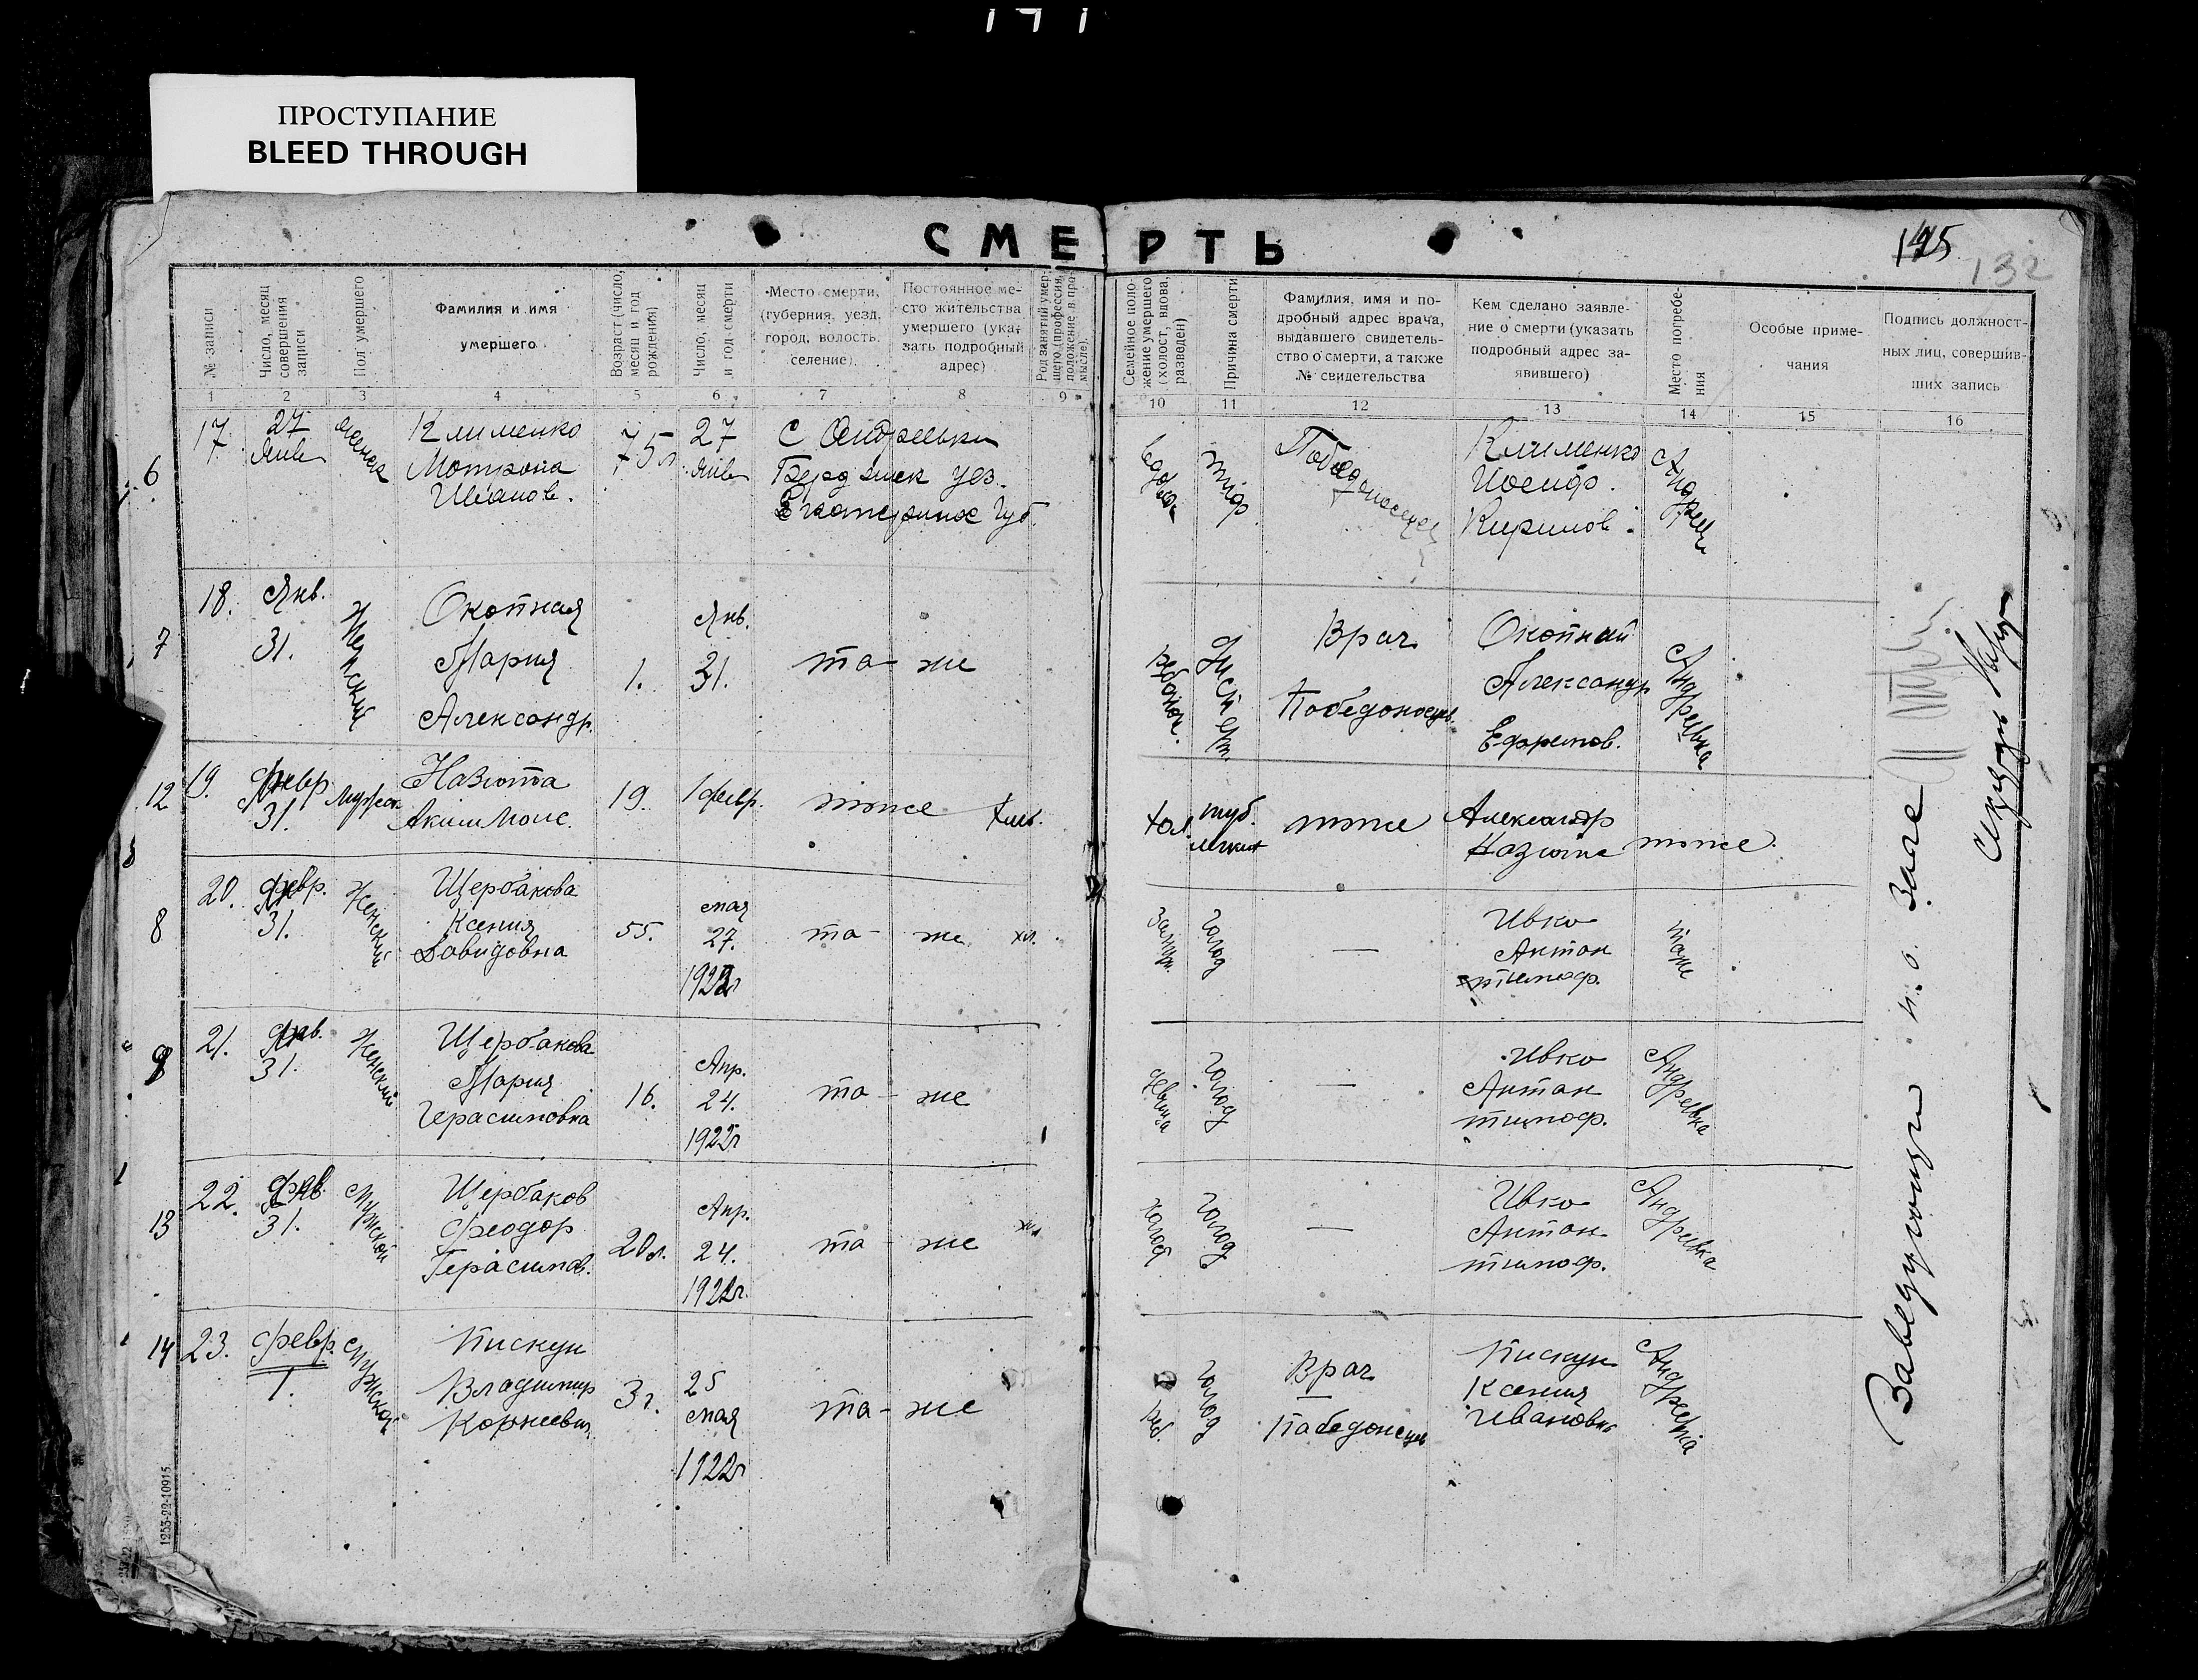 ПРОСТУПАНИЕ
BLEED THROUGH
СМЕРТЬ
195
132
№ записи
Число, месяц совершения записи
Пол умершего
Фамилия и имя
умершего
Возраст (число, месяц и год рождения)
Число, месяц и год смерти
Место смерти,
(губерния, уезд,
город, волость,
селение).
Постоянное ме-
сто жительства
умершего (ука-
зать подробный
адрес)
Род занятий умер-
шего (профессия,
положение в про-
мысле).
Семейное поло-
жение умершего
(холост, вдова,
разведен)
Причина смерти
Фамилия, имя и по-
дробный адрес врача,
выдавшего свидетель-
ство о смерти, а также
№ свидетельства
Кем сделано заявле-
ние о смерти (указать
подробный адрес за-
явившего)
Место погребе-
ния
Особые приме-
чания
Подпись должност-
ных лиц, совершив-
ших запись
1 2 3 4 5 6 7 8 9 10 11 12 13 14 15 16
6
17
27
Янв
Клименко
Матрона
Иванов.
75 л
27
Янв
С Андреевки
Бердянск уез.
Екатеринос Губ.
вдова
тиф
Победоносцев
Клименко
Иосиф.
Кирилов.
7
18.
Янв.
31.
Женский
Окопная
Мария
Александр.
1.
Янв.
31.
та - же
ребенок.
Врач
Победоносцев.
Окопный
Александр
Ефремов.
Андреевка
12
19.
февр
31.
Мужск
Назюта
Аким Моис.
19.
1 февр.
тоже
Хлеб.
Хол.
туб.
легких
тоже
Александр
Назюта
тоже.
8
20.
февр.
31.
Женский
Щербакова
Ксения
Давидовна
55.
мая
27.
1922г
та - же
хл.
Замуж.
голод
—
Ивко
Антон
тимоф.
таже
9
21.
31.
Женский
Щербакова
Мария
Герасимовна
16.
Апр.
24.
1922г
та - же
девица
голод
—
Ивко
Антон
тимоф.
Андреевка
13
22.
31.
Мужской
Щербаков
Феодор
Герасимов.
20 л.
Апр.
24.
1922г.
та - же
хл
холост
голод
—
Ивко
Антон
тимоф.
Андреевка
14
23.
февр.
1.
Мужской
Пискун
Владимир
Корнеевич
3 г.
25
мая
1922г
та - же
реб.
голод
Врач
Победонсцев
Пискун
Ксения
Ивановна
Андреевка
Заведующий п. о. Загс
Секретарь
1253-22-10915